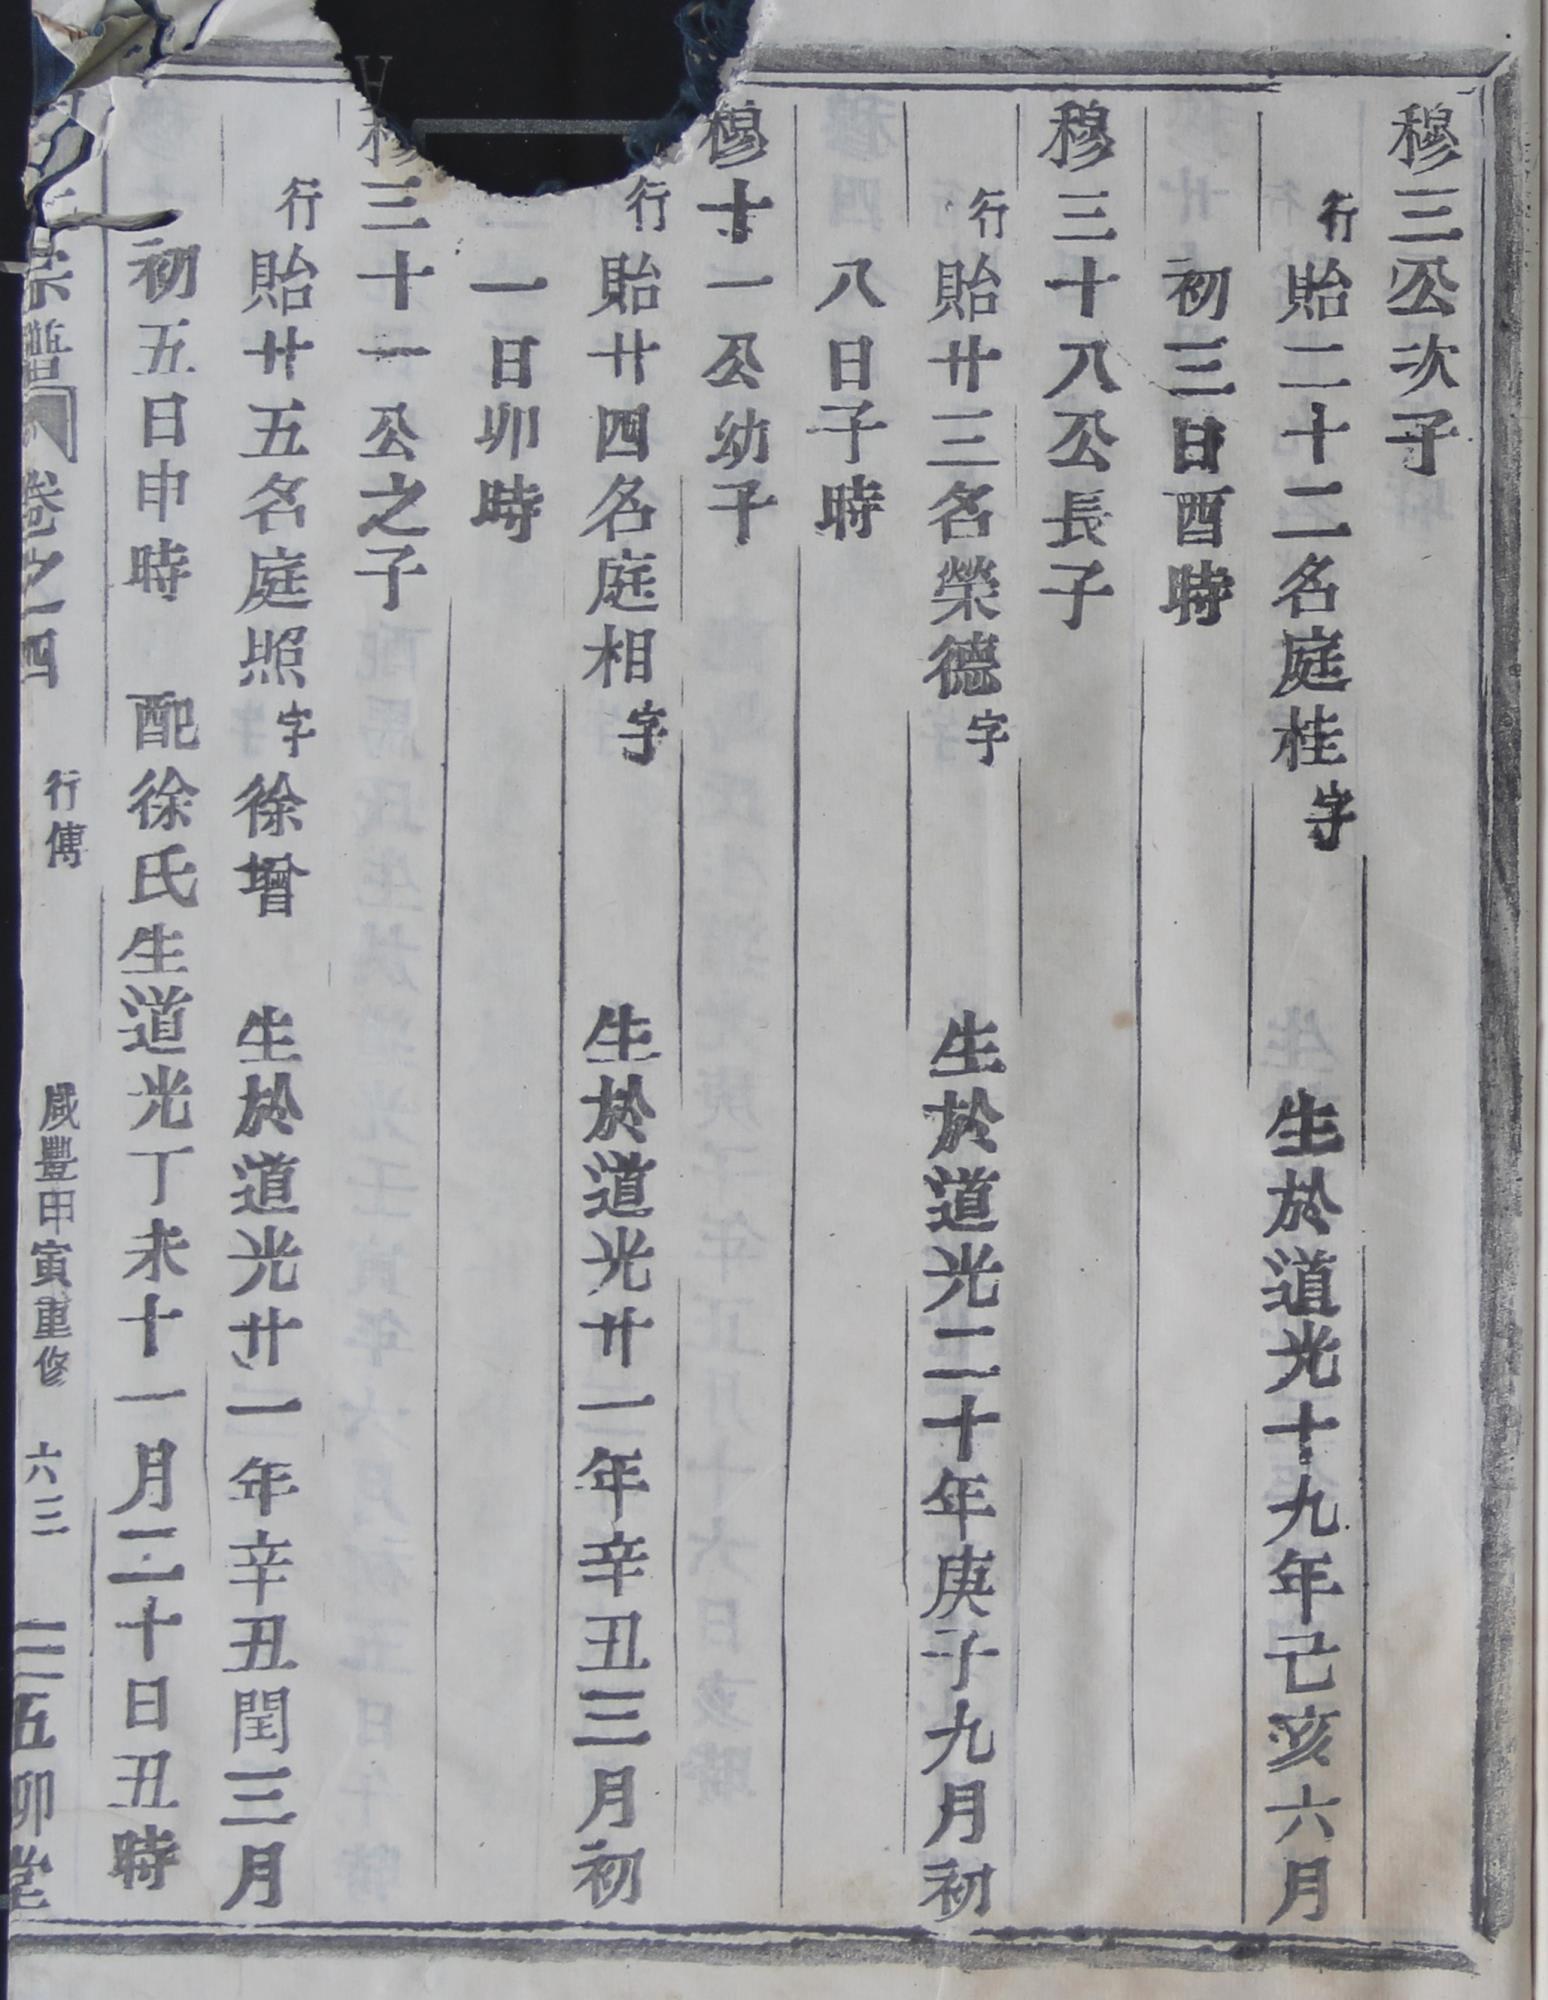 穆三公次子
行貽二十二名庭桂字　生於道光十九年己亥六月
初三日酉時
穆三十八公長子
行貽廿三名榮德字　生於道光二十年庚子九月初
八日子時
穆十一公幼子
行貽廿四名庭相字　生於道光廿一年辛丑三月初
一日卯時
穆三十一公之子
行貽廿五名庭照字徐增　生於道光廿一年辛丑閏三月
初五日申時　配徐氏生道光丁未十一月二十日丑時
宗譜　卷之四　行傳　咸豐甲寅重修　六三　五柳堂